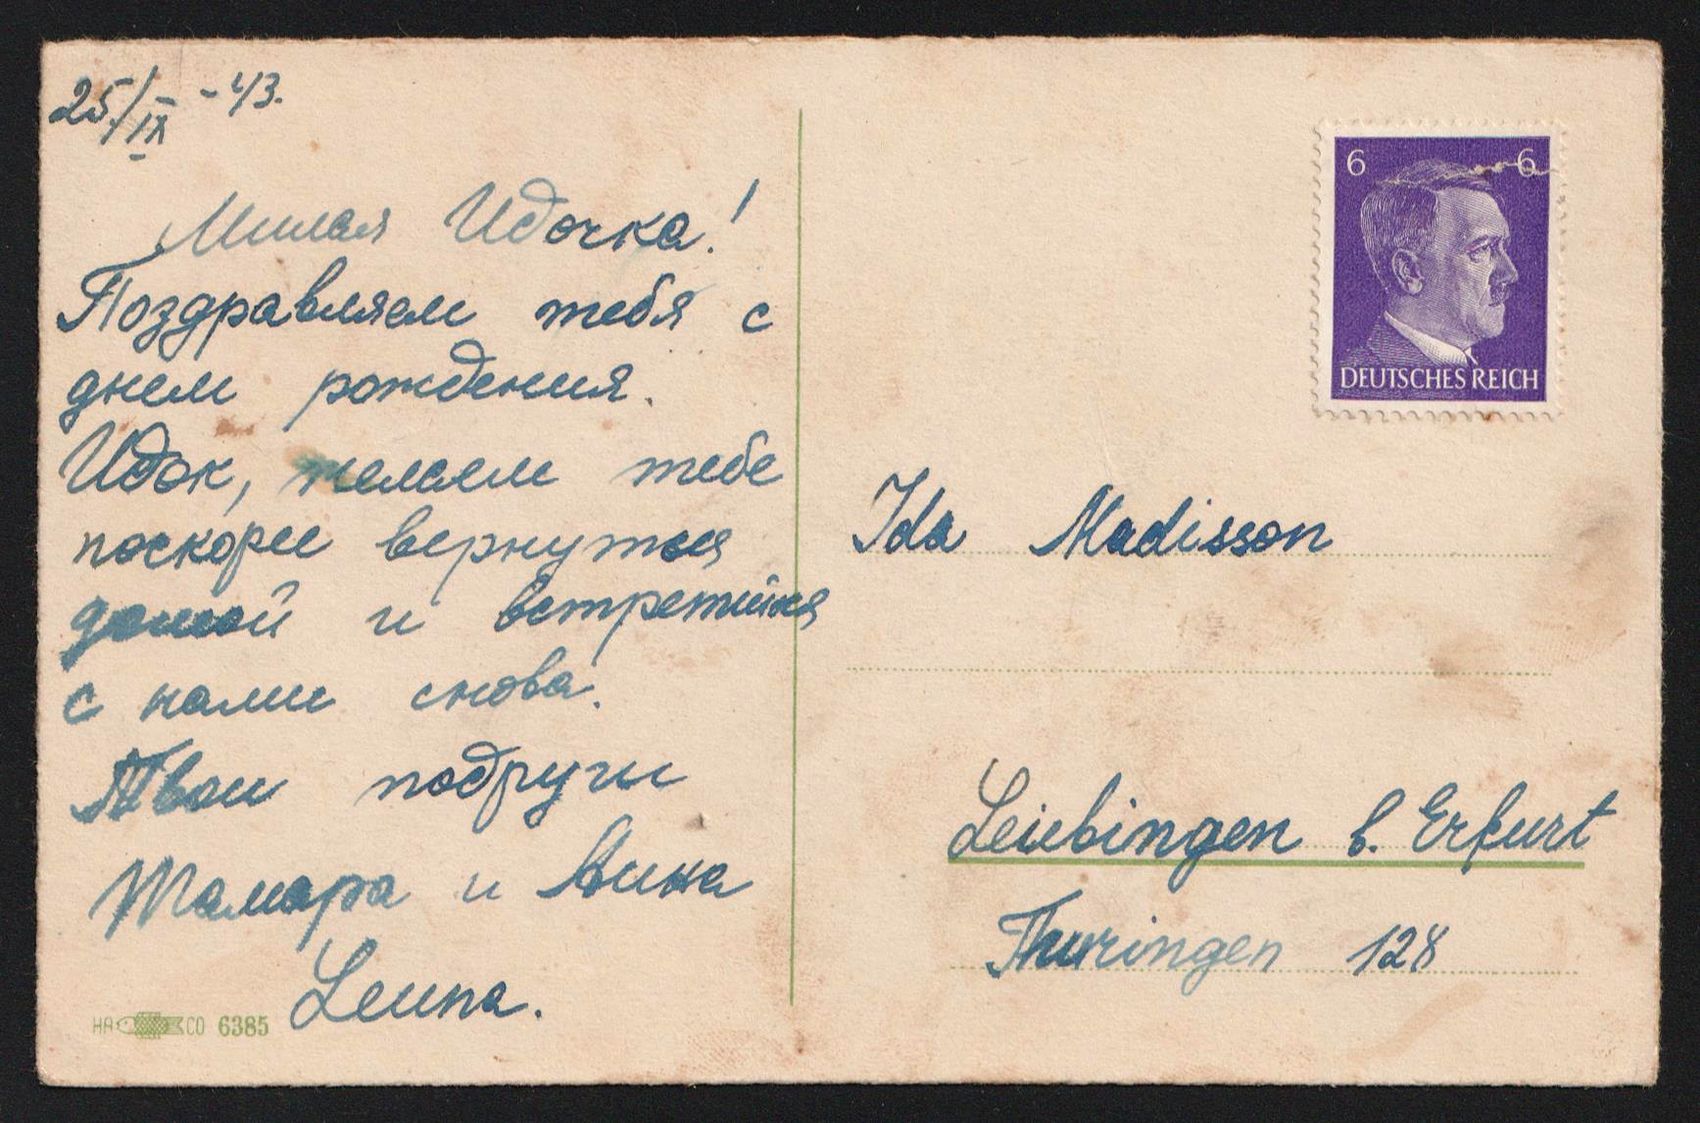 25/IX - 43.
Милая Идочка!
Поздравляем тебя с
днем рождения.
Идок, желаем тебе
поскорее вернуться
домой и встретится
с нами снова.
Твои подруги
Тамара и Анна
Leuna.
HA CO 6385
6 6
DEUTSCHES REICH
Ida Madisson
Leubingen b. Erfurt
Thuringen 128